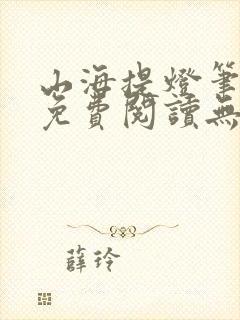 山海提燈筆
免費閱讀無
薛玲